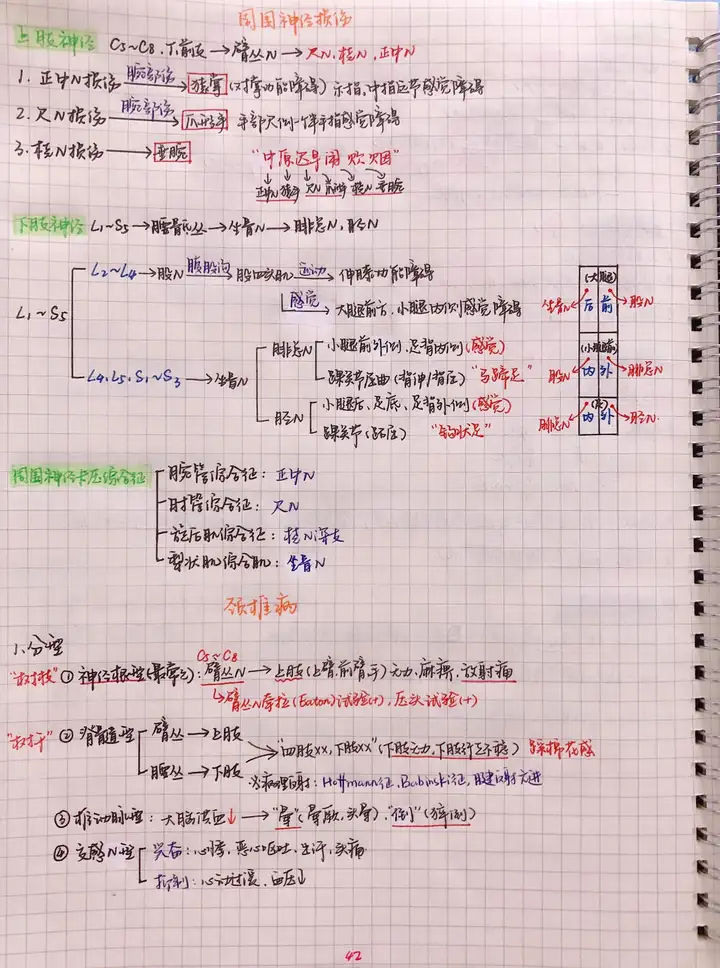 周围神经损伤
上肢神经 C5~C8.T1前支→臂丛N→尺N,桡N,正中N
1. 正中N损伤 腕部伤→ 猿掌 (对掌功能障碍) 示指,中指远节感觉障碍
2. 尺N损伤 腕部伤→ 爪形手 手部尺侧一半手指感觉障碍
3. 桡N损伤→ 垂腕
"中原迟早闹炊烟"
正中N 猿手 尺N 爪形手 桡N 垂腕
下肢神经 L1~S5→腰骶丛→坐骨N→腓总N,胫N
L1~S5
L2~L4→股N 腹股沟→股四头肌 运动→伸膝功能障碍
感觉→大腿前方,小腿内侧感觉障碍
L4.L5.S1~S3→坐骨N
腓总N 小腿前外侧,足背内侧(感觉)
踝关节屈曲(背伸/背屈) "马蹄足"
胫N 小腿后、足底、足背外侧(感觉)
踝关节(跖屈) "钩状足"
(大腿)
坐骨N 后 前 股N
(小腿前)
股N 内 外 腓总N
(足)
腓总N 内 外 胫N.
周围神经卡压综合征
腕管综合征: 正中N
肘管综合征: 尺N
旋后肌综合征: 桡N深支
梨状肌综合肌: 坐骨N
颈椎病
1.分型
C5~C8
①神经根型(最常见): 臂丛N→上肢(上臂,前臂,手)无力,麻痹,放射痛
臂丛N牵拉(Eaton)试验(+), 压头试验(+)
②脊髓型 臂丛→上肢
腰丛→下肢
"四肢xx,下肢xx"(下肢无力,下肢行走不稳) 踩棉花感
病理反射: Hoffmann征,Babinski征,腱反射亢进
③椎动脉型: 大脑供血↓→"晕"(晕厥,头晕),"倒"(猝倒)
④交感N型 兴奋: 心悸,恶心呕吐,出汗,头痛
抑制: 心动过缓,血压↓
42